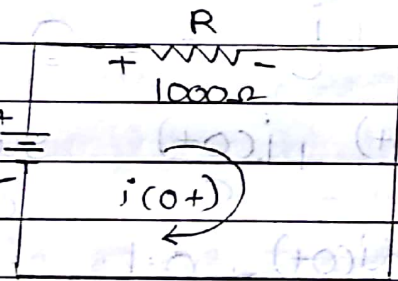 R
+ -
1000Ω
+
-
i(0+)